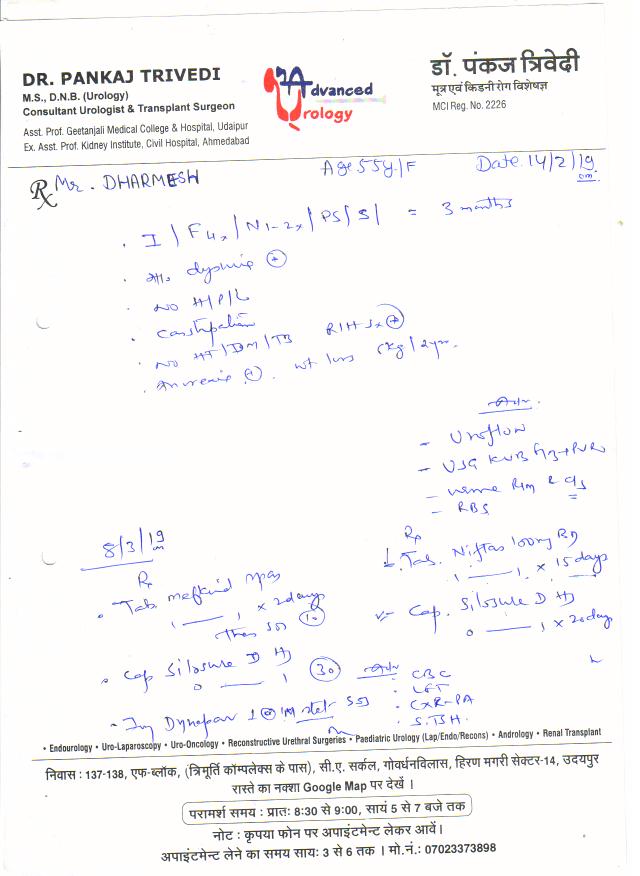 DR. PANKAJ TRIVEDI
M.S., D.N.B. (Urology)
Consultant Urologist & Transplant Surgeon
Asst. Prof. Geetanjali Medical College & Hospital, Udaipur
Ex. Asst. Prof. Kidney Institute, Civil Hospital, Ahmedabad
Advanced
Urology
डॉ. पंकज त्रिवेदी
मूत्र एवं किडनी रोग विशेषज्ञ
MCI Reg. No. 2226
Rx Mr. DHARMESH Age 55y/F Date 14/2/19
I / F4x / N1-2x / PS / S / = 3 months
dysuria +
NO H/P/L
Constipation
NO HT/DM/TB RIH Sx +
Anorexia + wt loss
Adv.
- Uroflow
- USG KUB + PVR
- Urine R/m & c/s
- RBS
Rx
Tab. Niftas 100mg BD
1 — 1 x 15 days
Cap. Silosure D HS
0 — 1 x 20 days
8/3/19
Rx
Tab. Mefkind spas
1 — 1 x 2 days
then SOS 10
Cap Silosure D HS
0 — 1 30
Inj Dynapar 1 IM stat SOS
Adv
CBC
LFT
CXR-PA
S.TSH.
• Endourology • Uro-Laparoscopy • Uro-Oncology • Reconstructive Urethral Surgeries • Paediatric Urology (Lap/Endo/Recons) • Andrology • Renal Transplant
निवास : 137-138, एफ-ब्लॉक, (त्रिमूर्ति कॉम्पलेक्स के पास), सी.ए. सर्कल, गोवर्धनविलास, हिरण मगरी सेक्टर-14, उदयपुर
रास्ते का नक्शा Google Map पर देखें ।
परामर्श समय : प्रातः 8:30 से 9:00, सायं 5 से 7 बजे तक
नोट : कृपया फोन पर अपाइंटमेन्ट लेकर आवें।
अपाइंटमेन्ट लेने का समय सायः 3 से 6 तक । मो.नं.: 07023373898